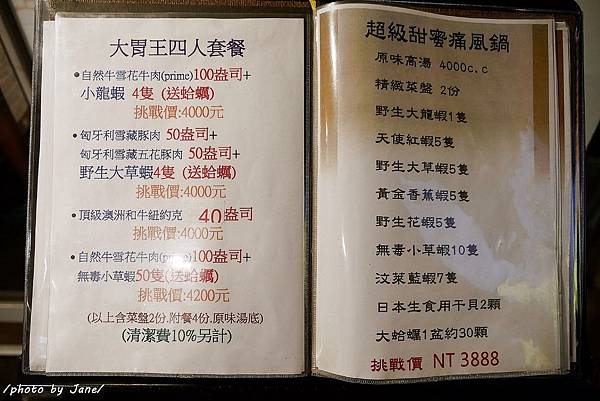 大胃王四人套餐
●自然牛雪花牛肉(prime)100盎司+
小龍蝦 4隻 (送蛤蠣)
挑戰價:4000元
●匈牙利雪藏豚肉 50盎司+
匈牙利雪藏五花豚肉 50盎司+
野生大草蝦4隻 (送蛤蠣)
挑戰價:4000元
●頂級澳洲和牛紐約克 40盎司
挑戰價:4000元
●自然牛雪花牛肉(prime)100盎司+
無毒小草蝦50隻(送蛤蠣)
挑戰價:4200元
(以上含菜盤2份.附餐4份.原味湯底)
(清潔費10%另計)
超級甜蜜痛風鍋
原味高湯 4000c.c
精緻菜盤 2份
野生大龍蝦1隻
天使紅蝦5隻
野生大草蝦5隻
黃金香蕉蝦5隻
野生花蝦5隻
無毒小草蝦10隻
汶萊藍蝦7隻
日本生食用干貝2顆
大蛤蠣1盆約30顆
挑戰價 NT 3888
/photo by Jane/